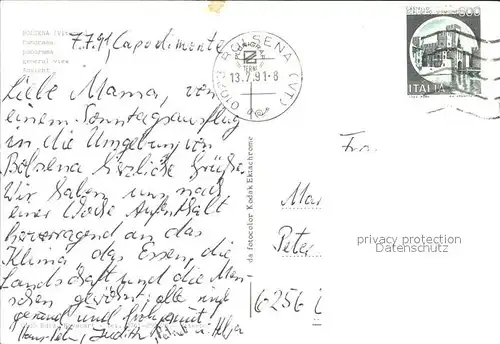 BOLSENA (Vit
Panorama
panorama
general view
Ansicht
7.7.91, Capodimonte
01023 BOLSENA (VT)
TERNI
13.7.91-8
600
ITALIA
Liebe Mama, von
einem Sonntagsausflug
in die Umgebung von
Bolsena herzliche Grüße.
Wir haben uns nach
einer Woche Aufenthalt
hervorragend an das
Klima, das Essen, die
Landschaft und die Men-
schen gewöhnt; alle sind
gesund und
Judith u. Holger
da fotocolor Kodak Ektachrome
Fra
Mar
Peter
6256
privacy protection
Datenschutz